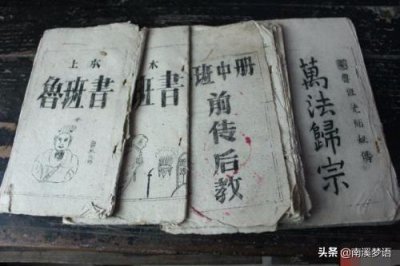 上本
魯班書
本
班書
班中册
前传后教
魯班先師秘傳
萬法歸宗
头条 @南溪梦语